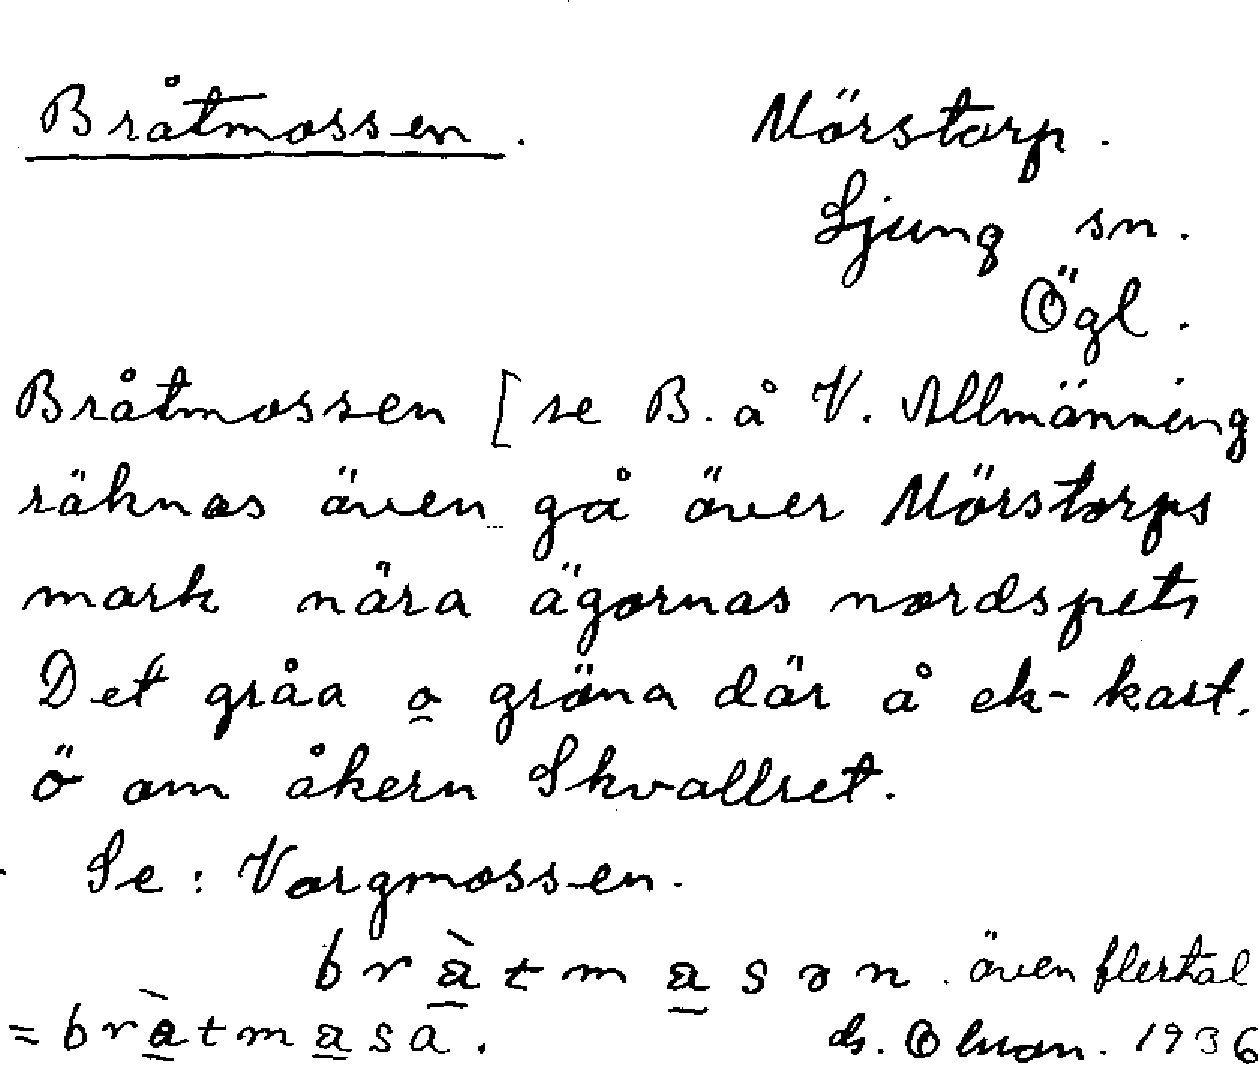 Bråtmossen. Mörstorp.
Ljung sn.
Ögl.
Bråtmossen [se B. å V. Allmänning
räknas även gå över Mörstorps
mark nära ägornas nordspets
Det gråa o gröna där å ek-kart.
ö om åkern Skvallret.
Se: Vargmossen.
bràtmasən. även flertal
= bràtmasa. 1936